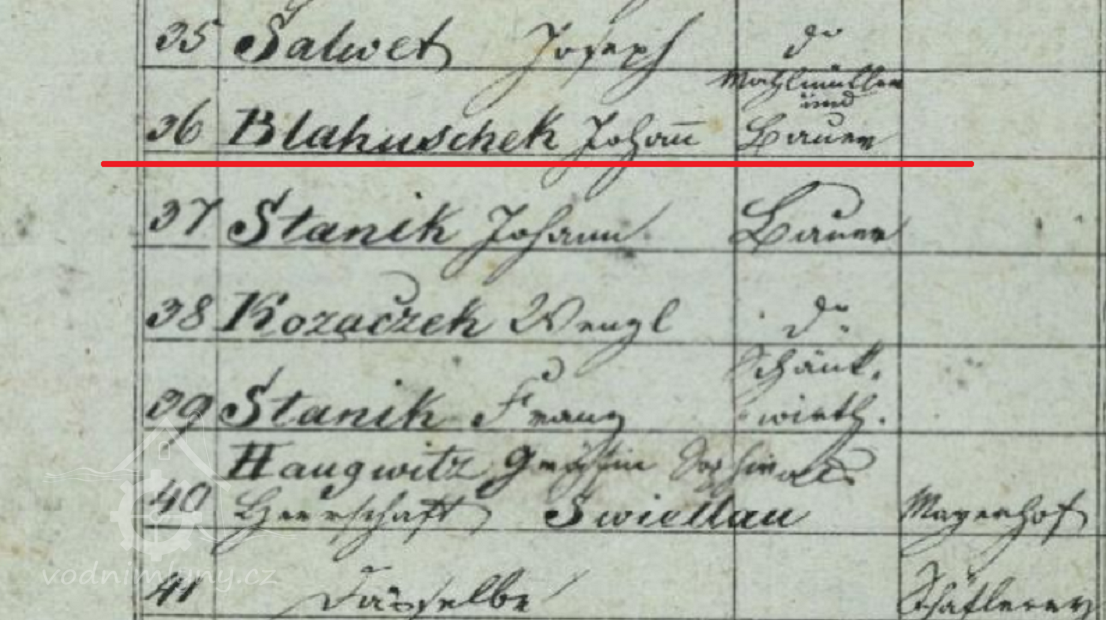 35 Salwet Joseph do
36 Blahuschek Johañ Mahlmüller
und
Bauer
37 Stanik Johann Bauer
38 Kozaczek Wenzl do
39 Stanik Franz Schänk-
wirth.
40 Haugwitz Gräfin Sophie als
Herrschaft Swietlau Mayerhof
41 Dasselbe Schäflerey
vodnimlyny.cz